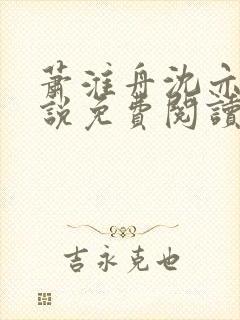 蕭淮舟沈亦
說免費閱讀
吉永克也